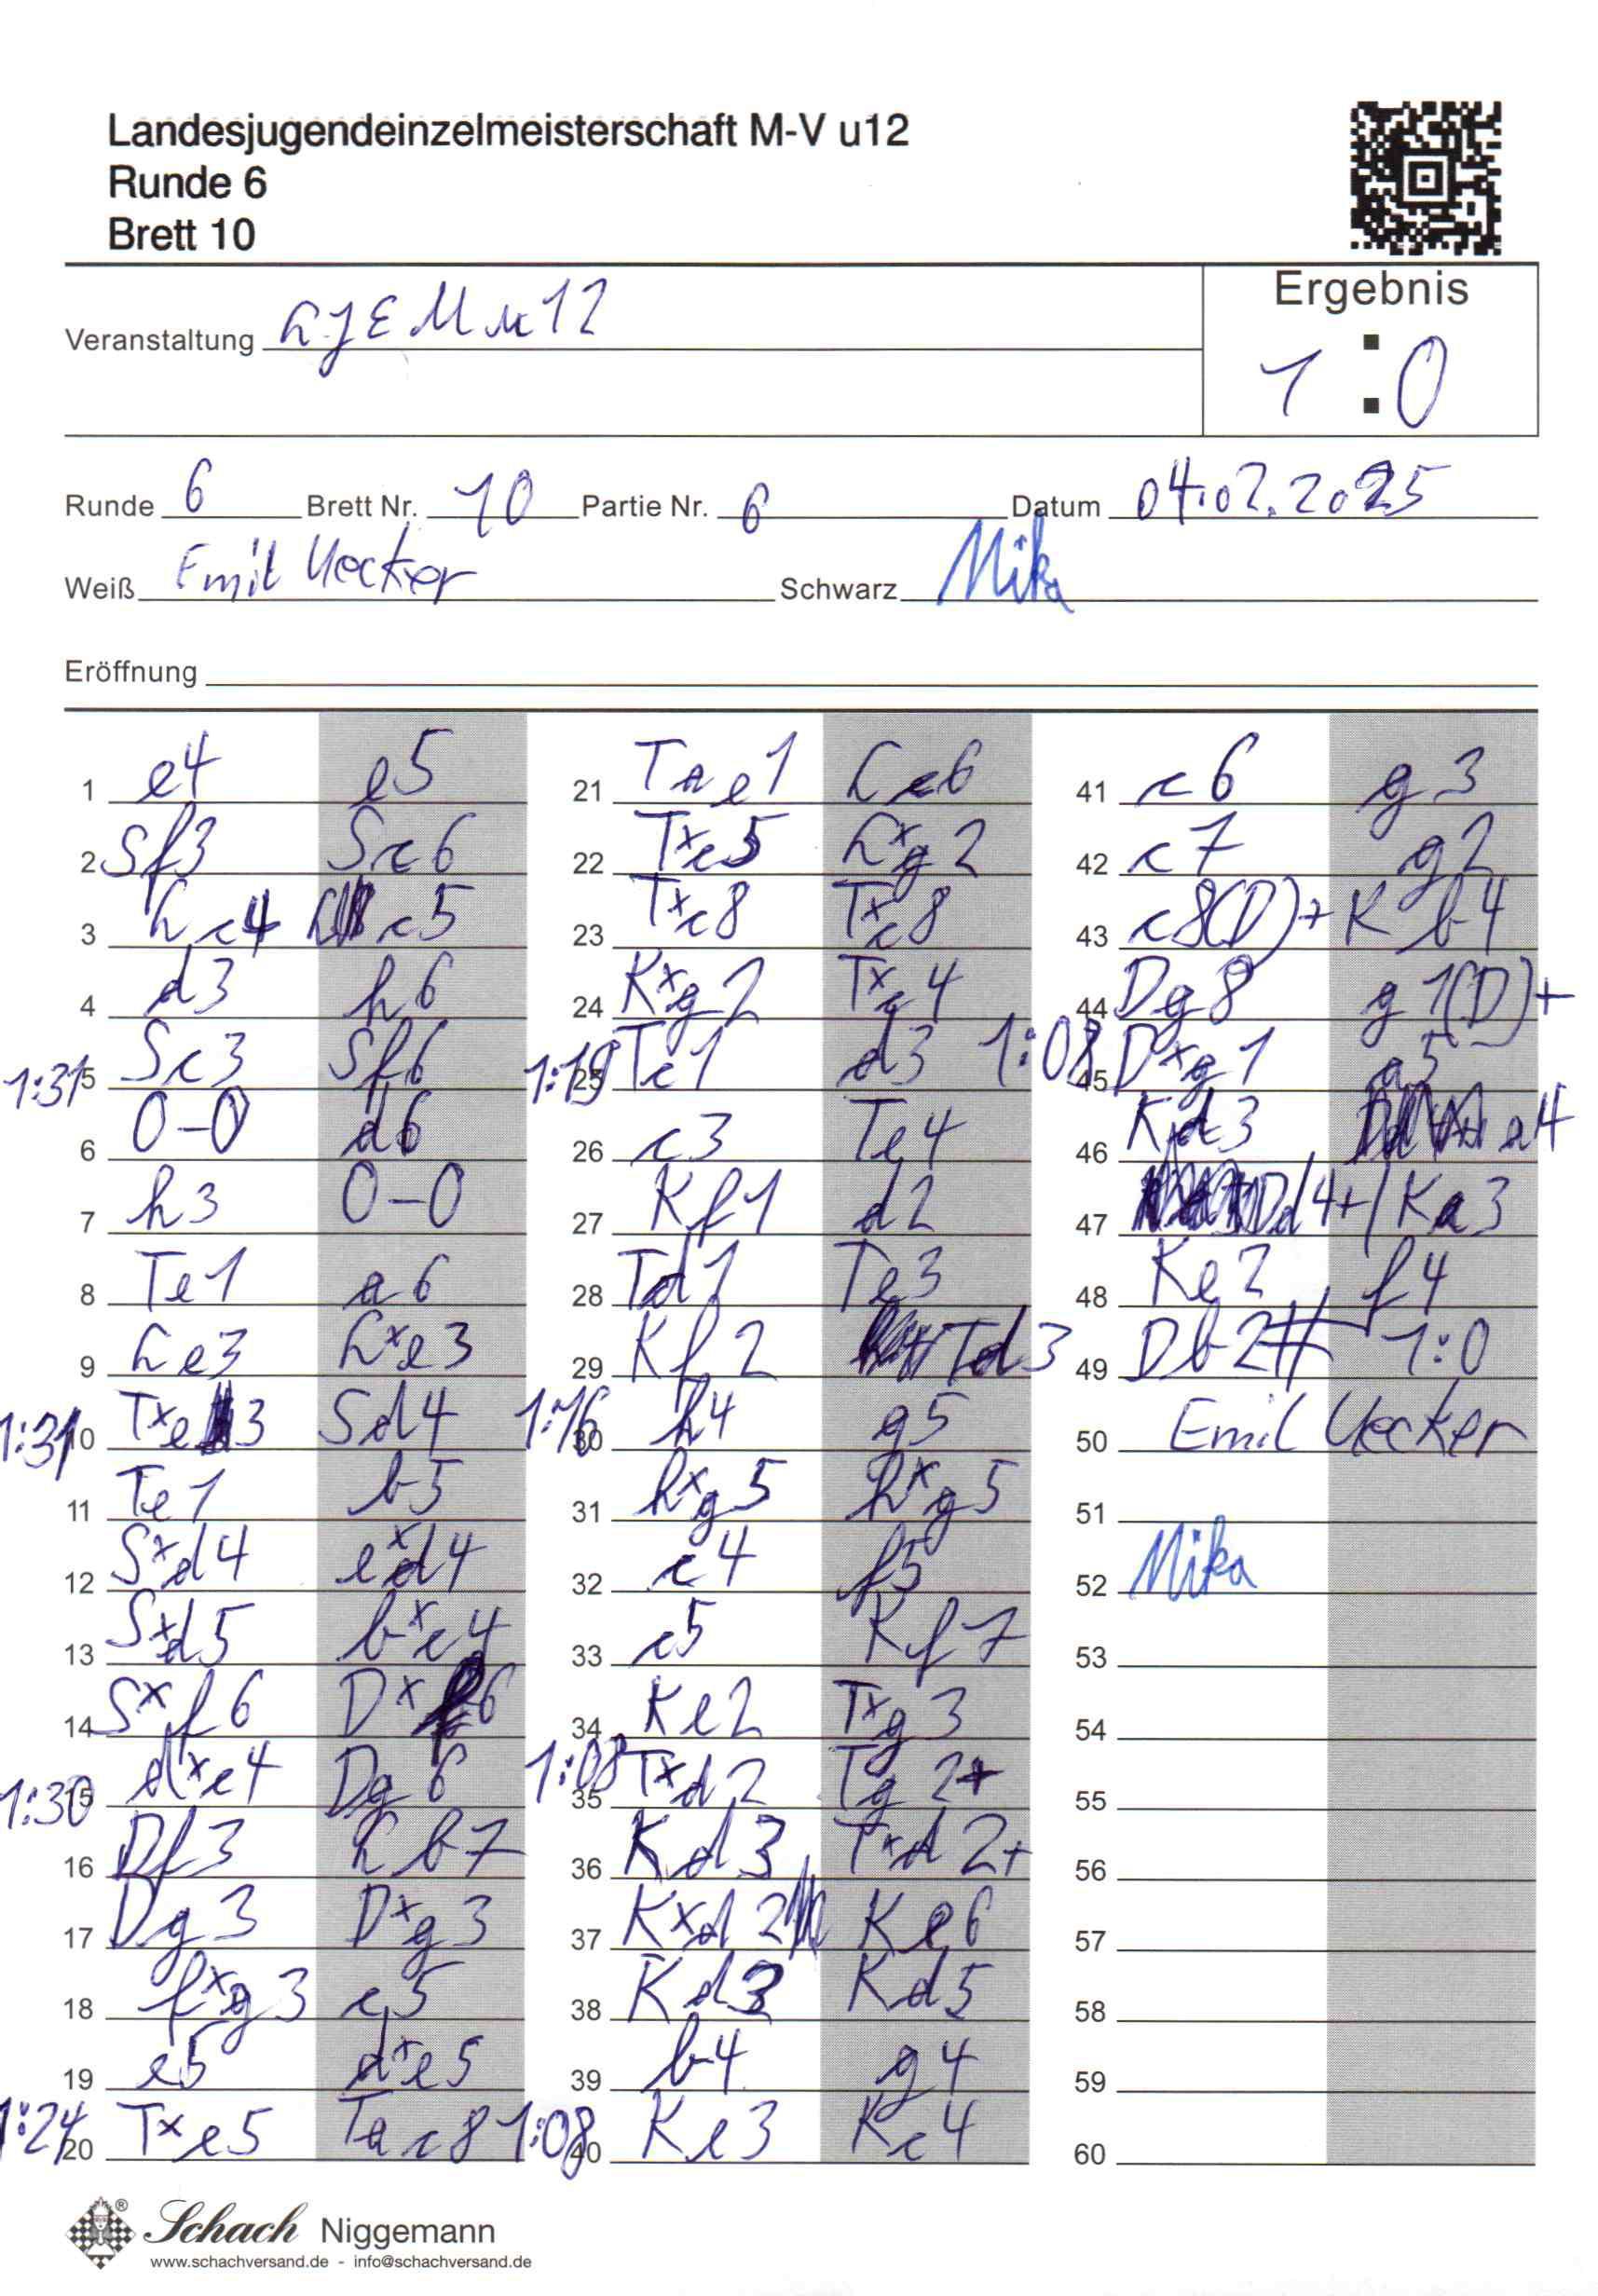 Landesjugendeinzelmeisterschaft M-V u12
Runde 6
Brett 10
Ergebnis
1:0
Veranstaltung LJEM u12
Runde 6 Brett Nr. 10 Partie Nr. 6 Datum 04.02.2025
Weiß Emil Uecker Schwarz Mika
Eröffnung
1 e4 e5
2 Sf3 Sc6
3 Lc4 Lc5
4 d3 h6
1:31 5 Sc3 Sf6
6 0-0 d6
7 h3 0-0
8 Te1 a6
9 Le3 Lxe3
1:31 10 Txe3 Sd4
11 Te1 b5
12 Sxd4 exd4
13 Sxd5 bxc4
14 Sxf6 Dxf6
1:30 15 dxc4 Dg6
16 Df3 Lb7
17 Dg3 Dxg3
18 fxg3 c5
19 e5 dxe5
1:24 20 Txe5 Tac8
21 Tae1 Lc6
22 Txc5 Lxg2
23 Txc8 Txc8
24 Kxg2 Txc4
1:19 25 Tc1 d3
26 c3 Te4
27 Kf1 d2
28 Td1 Te3
29 Kf2 Td3
1:16 30 h4 g5
31 hxg5 hxg5
32 c4 f5
33 c5 Kf7
34 Ke2 Txg3
1:08 35 Txd2 Tg2+
36 Kd3 Txd2+
37 Kxd2 Ke6
38 Kd3 Kd5
39 b4 g4
1:08 40 Ke3 Kc4
41 c6 g3
42 c7 g2
43 c8(D)+ Kb4
44 Dg8 g1(D)+
1:08 45 Dxg1 a5
46 Kd3 a4
47 Dd4+ Ka3
48 Ke2 f4
49 Db2# 1:0
50 Emil Uecker
51
52 Mika
53
54
55
56
57
58
59
60
Schach Niggemann
www.schachversand.de - info@schachversand.de